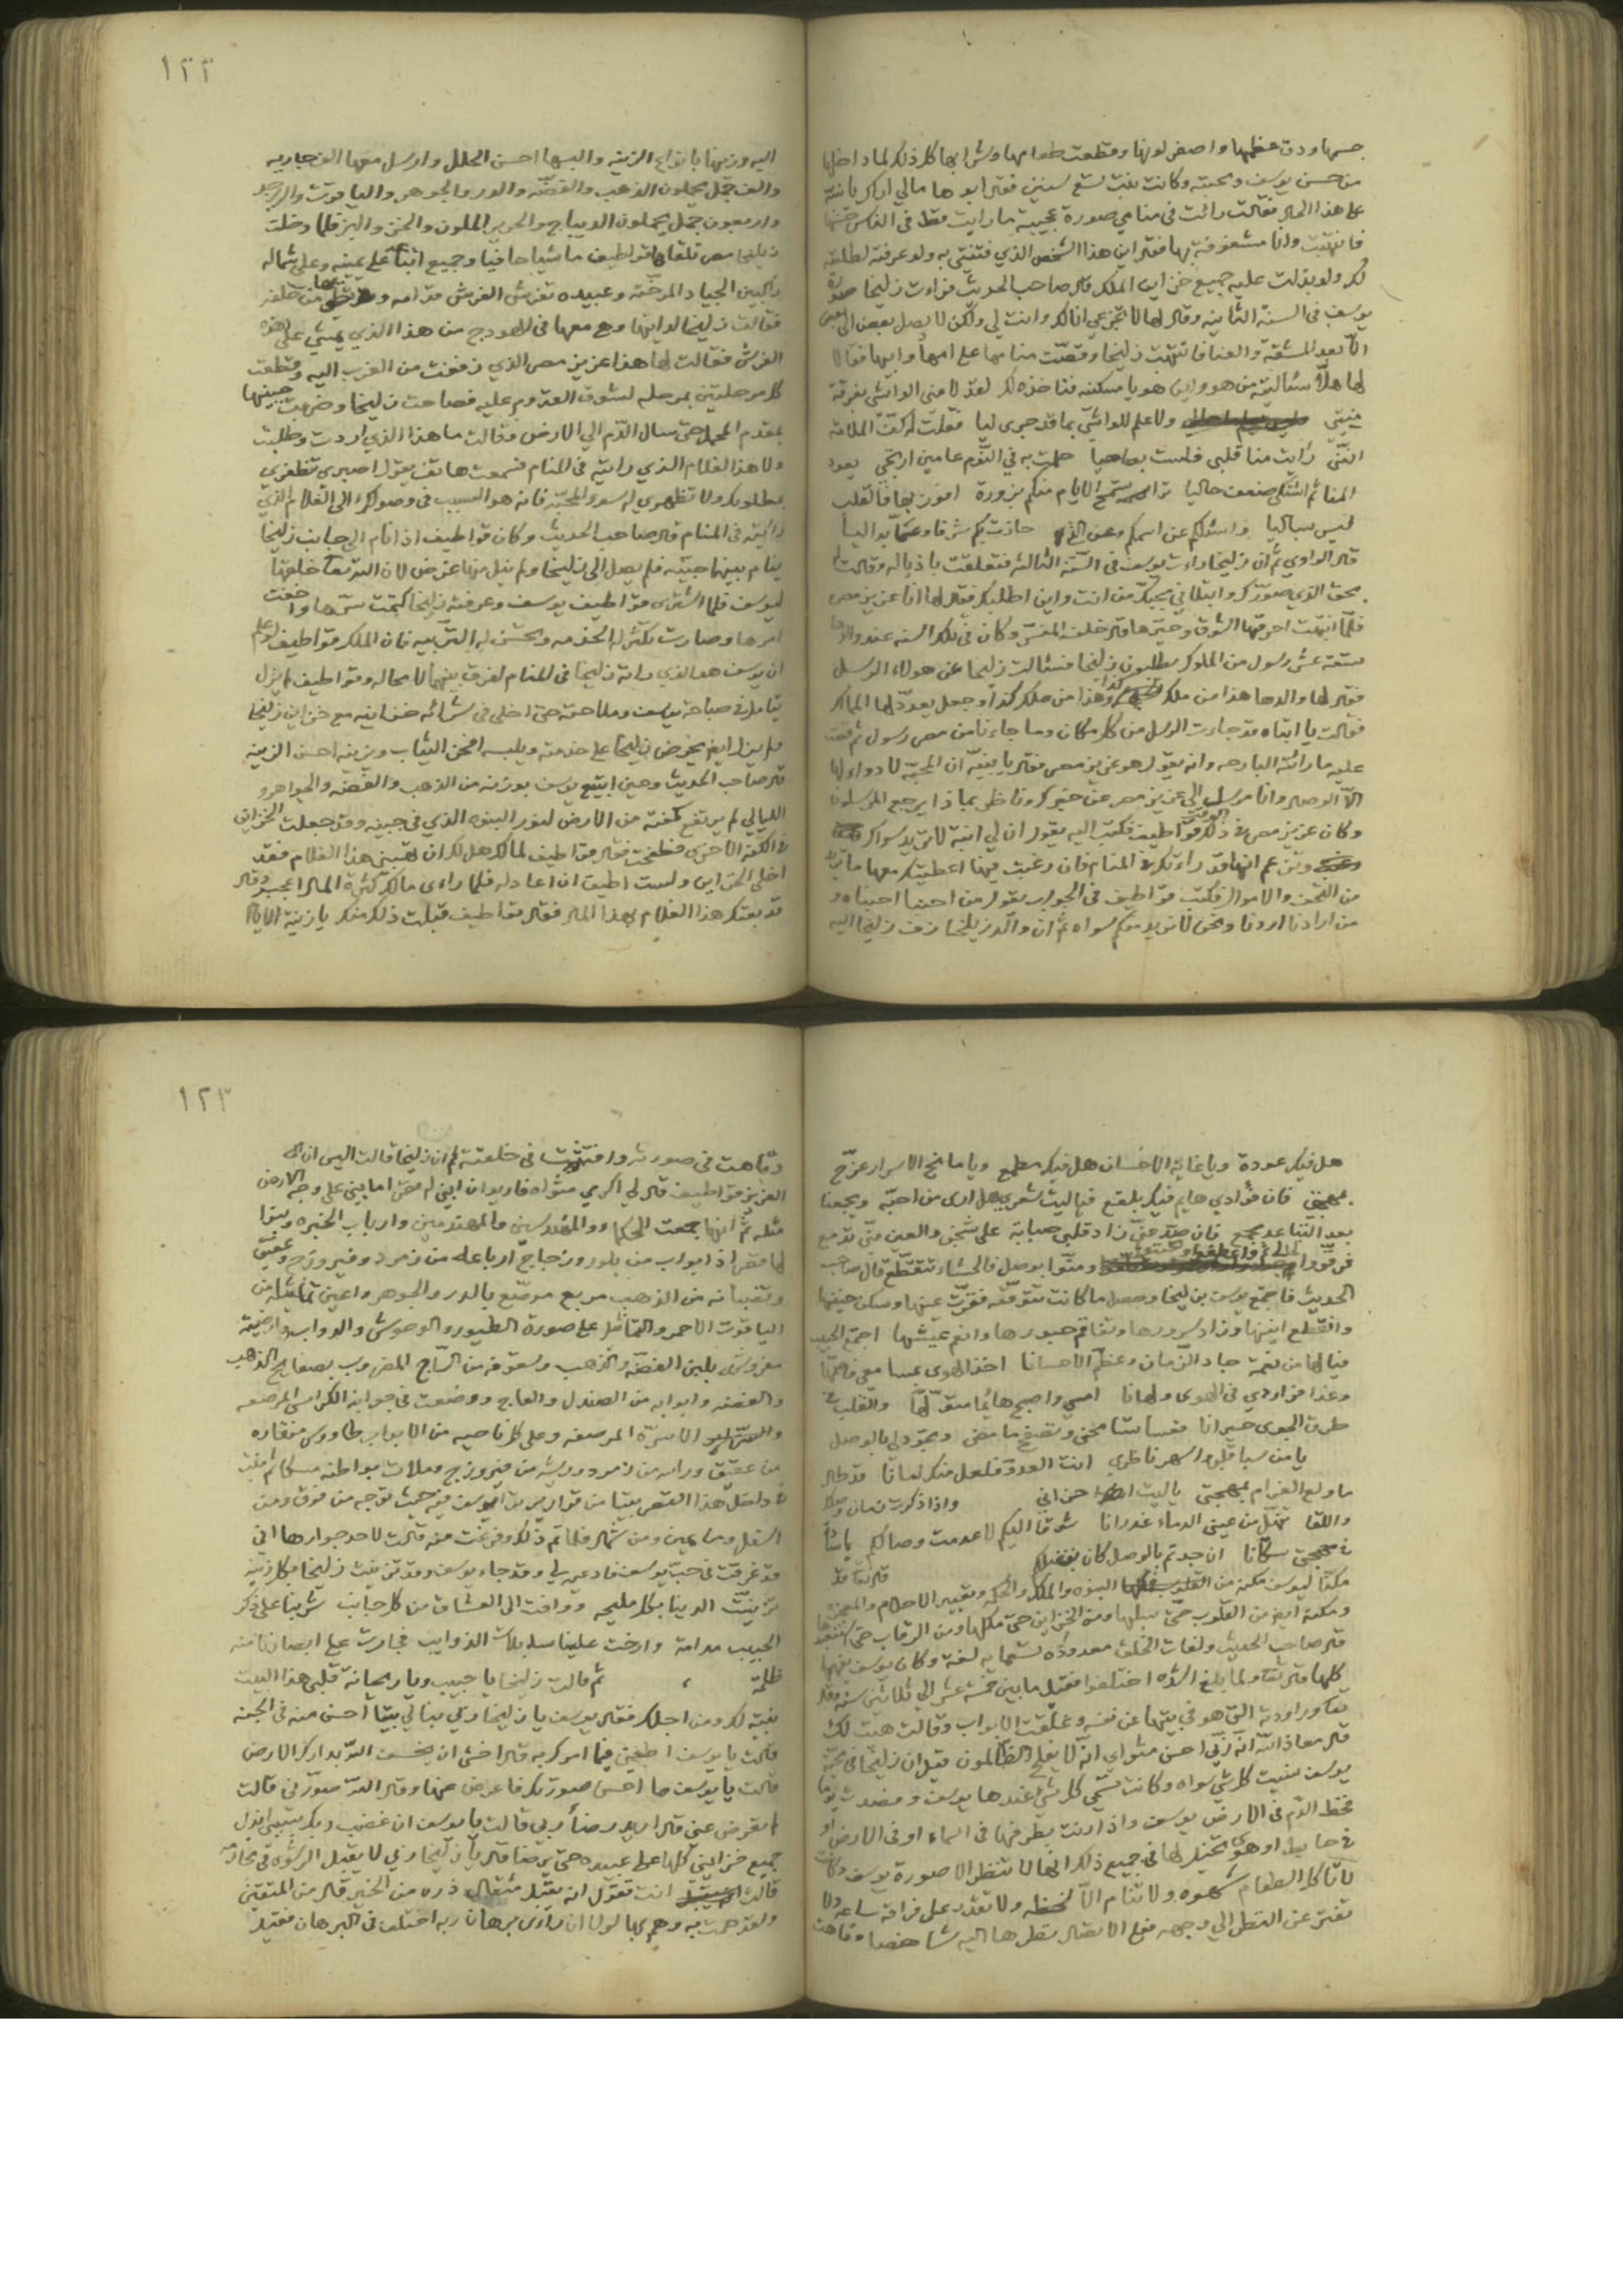 جسمها ودق عظمها واصفر لونها وقطعت طعامها وشرابها كل ذلك لما داخلها
من حسن يوسف ومحبته وكانت بنت تسع سنين فقال ابوها مالي اراكي يا بنته
على هذا الحال فقالت رائت في منامي صورة عجيبة ما رايت قط في الناس
فانتهيت وانا مشغوفة بها فقال اين هذا الشخص الذي فتنتي به ولو عرفته لطلبته
لك ولو بذلت عليه جميع خزاين الملك قال صاحب الحديث فراءت زليخا صورة
يوسف في السنة الثانيه وقال لها لا تجزعي انا لك وانت لي ولكن لا يصل بعض الى بعض
الا بعد المشقة والعنا فانتبهت زليخا وقصت منامها على امها وابيها فقالا
لها هلا سئالتيه من هو واين هو يا مسكنه لقد لامني الواشي بفرقة
منيتي ولا علم للواشي بما قد جرى ليا فقلت له كف الملامة
انني رايت منا قلبي حلمت به في النوم عامين ارتجي يعود
المنام اشتكي صنعت حاليا الايام منكم بزورة افوز بها فالقلب
ليس بساليا واسئلكم عن اسمكم وعن الذي حازت بكم شرقا
قال الراوي ثم ان زليخا راءت يوسف في السنة الثالثه فتعلقت باذياله وقالت له
بحق الذي صورك وابتلاني بحبك من انت واين اطلبك فقال لها انا عزيز مصر
فلما انتهت احرقها الشوق وكان في تلك السنه عند والدها
ستة عشر رسول من الملوك يطلبون زليخا فسئالت زليخا عن هولاء الرسل
فقال لها والدها هذا من ملك كذا وهذا من ملك كذا وجعل يعدد لها الممالك
فقالت يا ابتاه قد جاءت الرسل من كل مكان وما جاءنا من مصر رسول ثم قصت
عليه ما رائته البارحه وانه يقول هو عزيز مصر فقال يا بنية ان المحبة لا دواء لها
الا الوصال وانا مرسل الى عزيز مصر عن خبرك وناظر بماذا يرجع المرسلون
وكان عزيز مصر في ذلك الوقت قواطيف فكتب اليه يقول ان لي ابنة لا تريد سواك
وتزعم انها قد راءتك في المنام فان رغبت فيها اعطيتك معها ما تريد
من التحف والاموال فكتب قواطيف في الجواب يقول من احبنا احبناه و
من ارادنا اردنا ونحن لا نريد منكم سواه ثم ان والد زيلخا زف زليخا اليه
١٢٢
اليه وزينها بانواع الزينه والبسها احسن الحلل وارسل معها الف جاريه
والف جمل يحملون الذهب والفضه والدر والجوهر والياقوت والزبرجد
واربعون جمل يحملون الديباج والحرير الملون والخز والبز فلما دخلت
زيلخا مصر تلقاها قواطيف ماشيا حافيا وجميع ابنائه على يمينه وعلى شماله
راكبين الجياد المرخته وعبيده تفرش الفرش قدامه من خلفه
فقالت زليخا لدايتها وهي معها في الهودج من هذا الذي يمشي على هذه
الفرش فقالت لها هذا عزيز مصر الذي زففت من الغرب اليه وقطعت
كل مرحلتين بمرحله لشوق القدوم عليه فصاحت زليخا وضربت جبينها
بمقدم المحمل حتى سال الدم الى الارض وقالت ما هذا الذي اردت وطلبت
ولا هذا الغلام الذي رايته في المنام فسمعت هاتف يقول اصبري تظفري
بمطلوبك ولا تظهري له سوء المحبة فانه هو السبب في وصولك الى الغلام الذي
رائيته في المنام قال صاحب الحديث وكان قواطيف اذا نام الى جانب زليخا
ينام بينهما جنيه فلم يصل الى زليخا ولم ينل منها غرض لان الله تعالى خلقها
ليوسف فلما اشترى قواطيف يوسف وعرفته زليخا كتمت سرها واخفت
امرها وصارت تكثر له الخدمه وتحسن له التربيه فان الملك قواطيف لو علم
ان يوسف هو الذي راته زليخا في المنام لفرق بينهما لا محاله وقواطيف لم يزل
يتامل في صباحة يوسف وملاحته حتى اخلى في شرائه خزاينه مع خزاين زليخا
ولم يزل ايضا يحرض زليخا على خدمته ويلبسه افخر الثياب ويزينه احسن الزينه
قال صاحب الحديث وحين ابتيع يوسف بوزنه من الذهب والفضه والجواهر و
الليالي لم يرتفع كفته من الارض لنور النبوه الذي في جبينه وقد جعلت الخزاين
في الكفة الاخرى فقال قواطيف لمالك هل لك ان تهبني هذا الغلام فقد
اخلى الخزاين ولست اطيق ان اعادله فلما راى مالك كثرة المال اعجبه وقال
قد بعتك هذا الغلام بهذا المال فقال قواطيف قبلت ذلك منك يا زينة الانام
هل فيك عودة ويا غاية الاحسان هل فيك مطمع ويا مانح الاسرار عرج
بمهجتي فان فؤادي هايم فيك بلقع فياليت شعري هل ارى من احبه ويجمعنا
بعد التنا عد مجمع فان صد عني زاد قلبي صبابة على شجني والعين مني تدمع
فرقوا لحالي واعطفوا ومنوا بوصل فالحشاء تتقطع قال صاحب
الحديث فاجتمع يوسف بزليخا وحصل ما كانت تتوقعه فقرت عينها وسكن حنينها
وانقطع انينها وزاد سرورها وتفاقم حبورها وانعم عيشها اجتمع الحبيب
فيا لها من نعمة جاد الزمان وعظم الاحسانا اخذ الهوى
وغذا فؤادي في الهوى ولهانا امسي واصبح هائما متولها والقلب في
طرق الجوى حيرانا فعسا ننا محني وتصفح ما مضى وتجود لي بالوصل
يا من سبا قلبي واسهر ناظري انت العدو فلعل منك امانا قد طال
ما ولع الغرام بمهجتي ياليت احزاني واذا ذكرت زمان
واللقا تهمل من عيني الدماء غدرانا شوقا اليكم لا عدمت وصالكم يا ساكن
في مهجتي سكانا ان جدتم بالوصل كان بفضلكم قال الله تعالى قد
مكنا ليوسف مكنه من القلوب النبوه والملك والحكمه وتعبير الاحلام والمعجزه
ومكنه ايضا من القلوب حتى سلبها ومن الخزاين حتى ملكها ومن الرقاب حتى استعبدها
قال صاحب الحديث ولغات الخلق معدوده تسعمايه لغة وكان يوسف يفهمها
كلها قال الله تعالى ولما بلغ اشده اختلفوا فقيل ما بين خمسة عشر الى ثلاثين سنه وقال
تعالى وراودته التي هو في بيتها عن نفسه وغلقت الابواب وقالت هيت لك
قال معاذ الله انه ربي احسن مثواي انه لا يفلح الظالمون فقيل ان زليخا في محبة
يوسف نسيت كل شي سواه وكانت تسمي كل شي عندها يوسف وفصدت يوما
فخط الدم في الارض يوسف واذا رنت بطرفها في السماء او في الارض او
في حايط او هوى تخيل لها في جميع ذلك انها لا تنظر الا صورة يوسف وكانت
لا تاكل الطعام بشهوه ولا تنام الا لحظه ولا تقدر على فراقه ساعه ولا
تفتر عن النظر الى وجهه فعلى الاتصال نظرها اليه شاخصا وتاهت
١٢٣
وتاهت في صورته وافتتنت في خلقته ثم ان زليخا قالت اليس ان
العزيز قواطيف قال لي اكرمي مثواه فاريد ان ابني له قصرا ما بني على وجه الارض
مثله ثم انها جمعت الحكما ووالمهندسين والمهندمين وارباب الخبره وبنوا
لها قصرا ذا ابواب من بلور وزجاج ارباعه من زمرد وفيروزج وعقيق
وقضبانه من الذهب مربع مرصع بالدر والجوهر واعين تماثيله من
الياقوت الاحمر والتماثل على صورة الطيور والوحوش والدواب وارضيته
مفروش بلبن الفضه والذهب وسقوفه من الساج المضروب بصفايح الذهب
والفضه وابوابه من الصندل والعاج ووضعت في جوانبه الكراسي المرصعه
والاسرة المرصعه وعلى كل ناحيه من الابواب طاووس منقاره
من عقيق وراسه من زمرد وريشه من فيروزج وملات بواطنه مسكا ثم بنت
في داخل هذا القصر بيتا من قوارير يرى يوسف فيه حيث توجه من فوق ومن
اسفل ومن يمين ومن شمال فلما تم ذلك وفرغت منه قالت لاحد جوارها اني
قد غرقت في حب يوسف فادعيه لي وقد جاء يوسف وقد تزينت زليخا بكل زينه
تزينت الدينا بكل مليحه ووافت الى العشاق من كل جانب شربنا على ذكر
الحبيب مدامة وارخت علينا مسبلات الذوايب فجارت على ابصارنا منه
ظلمة ثم قالت زليخا يا حبيب ويا ريحانة قلبي هذا البيت
بنيته لك ومن اجلك فقال يوسف يا زليخا ربي بنا لي بيتا احسن منه في الجنه
قالت يا يوسف اطعني فيما امرك به قال اخشى ان يخسف الله بدارك الارض
قالت يا يوسف ما احسن صورتك فاعرض عنها وقال الله صورني قالت
لم تعرض عني قال اريد رضا ربي قالت يا يوسف ان غضب ربك ببيني ابذل
جميع خزايني كلها على عبيده حتى يرضا قال يا زليخا ربي لا يقبل الرشوه في محارمه
قالت انت تقول انه يقبل مثقال ذره من الخير قال من المتقين
ولقد همت به وهم بها لولا ان راى برهان ربه اختلف في البرهان فقيل